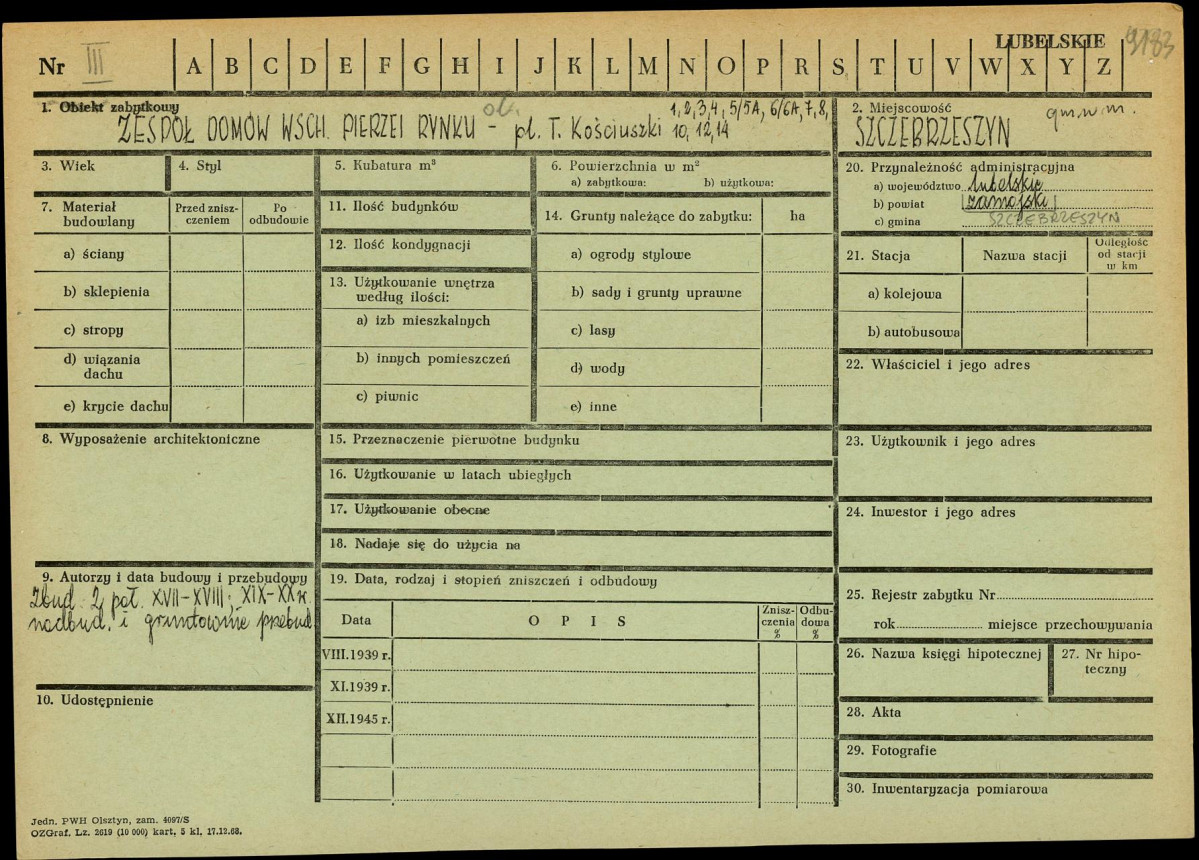 LUBELSKIE 9183
Nr III A B C D E F G H I J K L M N O P R S T U V W X Y Z
1. Obiekt zabytkowy ob. 1, 2, 3, 4, 5/5A, 6/6A, 7, 8,
ZESPÓŁ DOMÓW WSCH. PIERZEI RYNKU – pl. T. Kościuszki 10, 12, 14
2. Miejscowość gm. w m.
SZCZEBRZESZYN
3. Wiek
4. Styl
5. Kubatura m³
6. Powierzchnia w m²
a) zabytkowa: b) użytkowa:
7. Materiał budowlany
Przed znisz-
czeniem
Po
odbudowie
a) ściany
b) sklepienia
c) stropy
d) wiązania
dachu
e) krycie dachu
8. Wyposażenie architektoniczne
9. Autorzy i data budowy i przebudowy
Zbud. 2 poł. XVII–XVIII; XIX–XX w.
nadbud. i gruntownie przebud.
10. Udostępnienie
11. Ilość budynków
12. Ilość kondygnacji
13. Użytkowanie wnętrza
według ilości:
a) izb mieszkalnych
b) innych pomieszczeń
c) piwnic
14. Grunty należące do zabytku: ha
a) ogrody stylowe
b) sady i grunty uprawne
c) lasy
d) wody
e) inne
15. Przeznaczenie pierwotne budynku
16. Użytkowanie w latach ubiegłych
17. Użytkowanie obecne
18. Nadaje się do użycia na
19. Data, rodzaj i stopień zniszczeń i odbudowy
Data O P I S
Znisz-
czenia
%
Odbu-
dowa
%
VIII.1939 r.
XI.1939 r.
XII.1945 r.
20. Przynależność administracyjna
a) województwo lubelskie
b) powiat zamojski
c) gmina SZCZEBRZESZYN
21. Stacja Nazwa stacji
Odległość
od stacji
w km
a) kolejowa
b) autobusowa
22. Właściciel i jego adres
23. Użytkownik i jego adres
24. Inwestor i jego adres
25. Rejestr zabytku Nr
rok miejsce przechowywania
26. Nazwa księgi hipotecznej
27. Nr hipo-
teczny
28. Akta
29. Fotografie
30. Inwentaryzacja pomiarowa
Jedn. PWH Olsztyn, zam. 4097/S
OZGraf. Lz. 2619 (10 000) kart. 5 kl. 17.12.68.